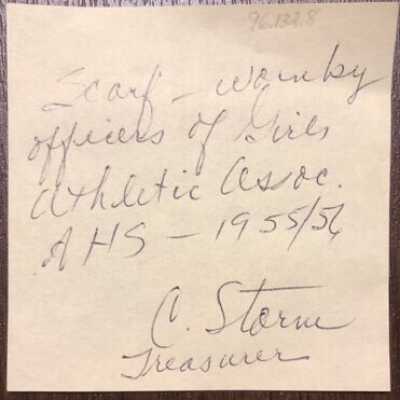 96.132.8
Scarf – worn by
officers of Girls
Athletic Assoc.
AHS – 1955/56
C. Storm
Treasurer